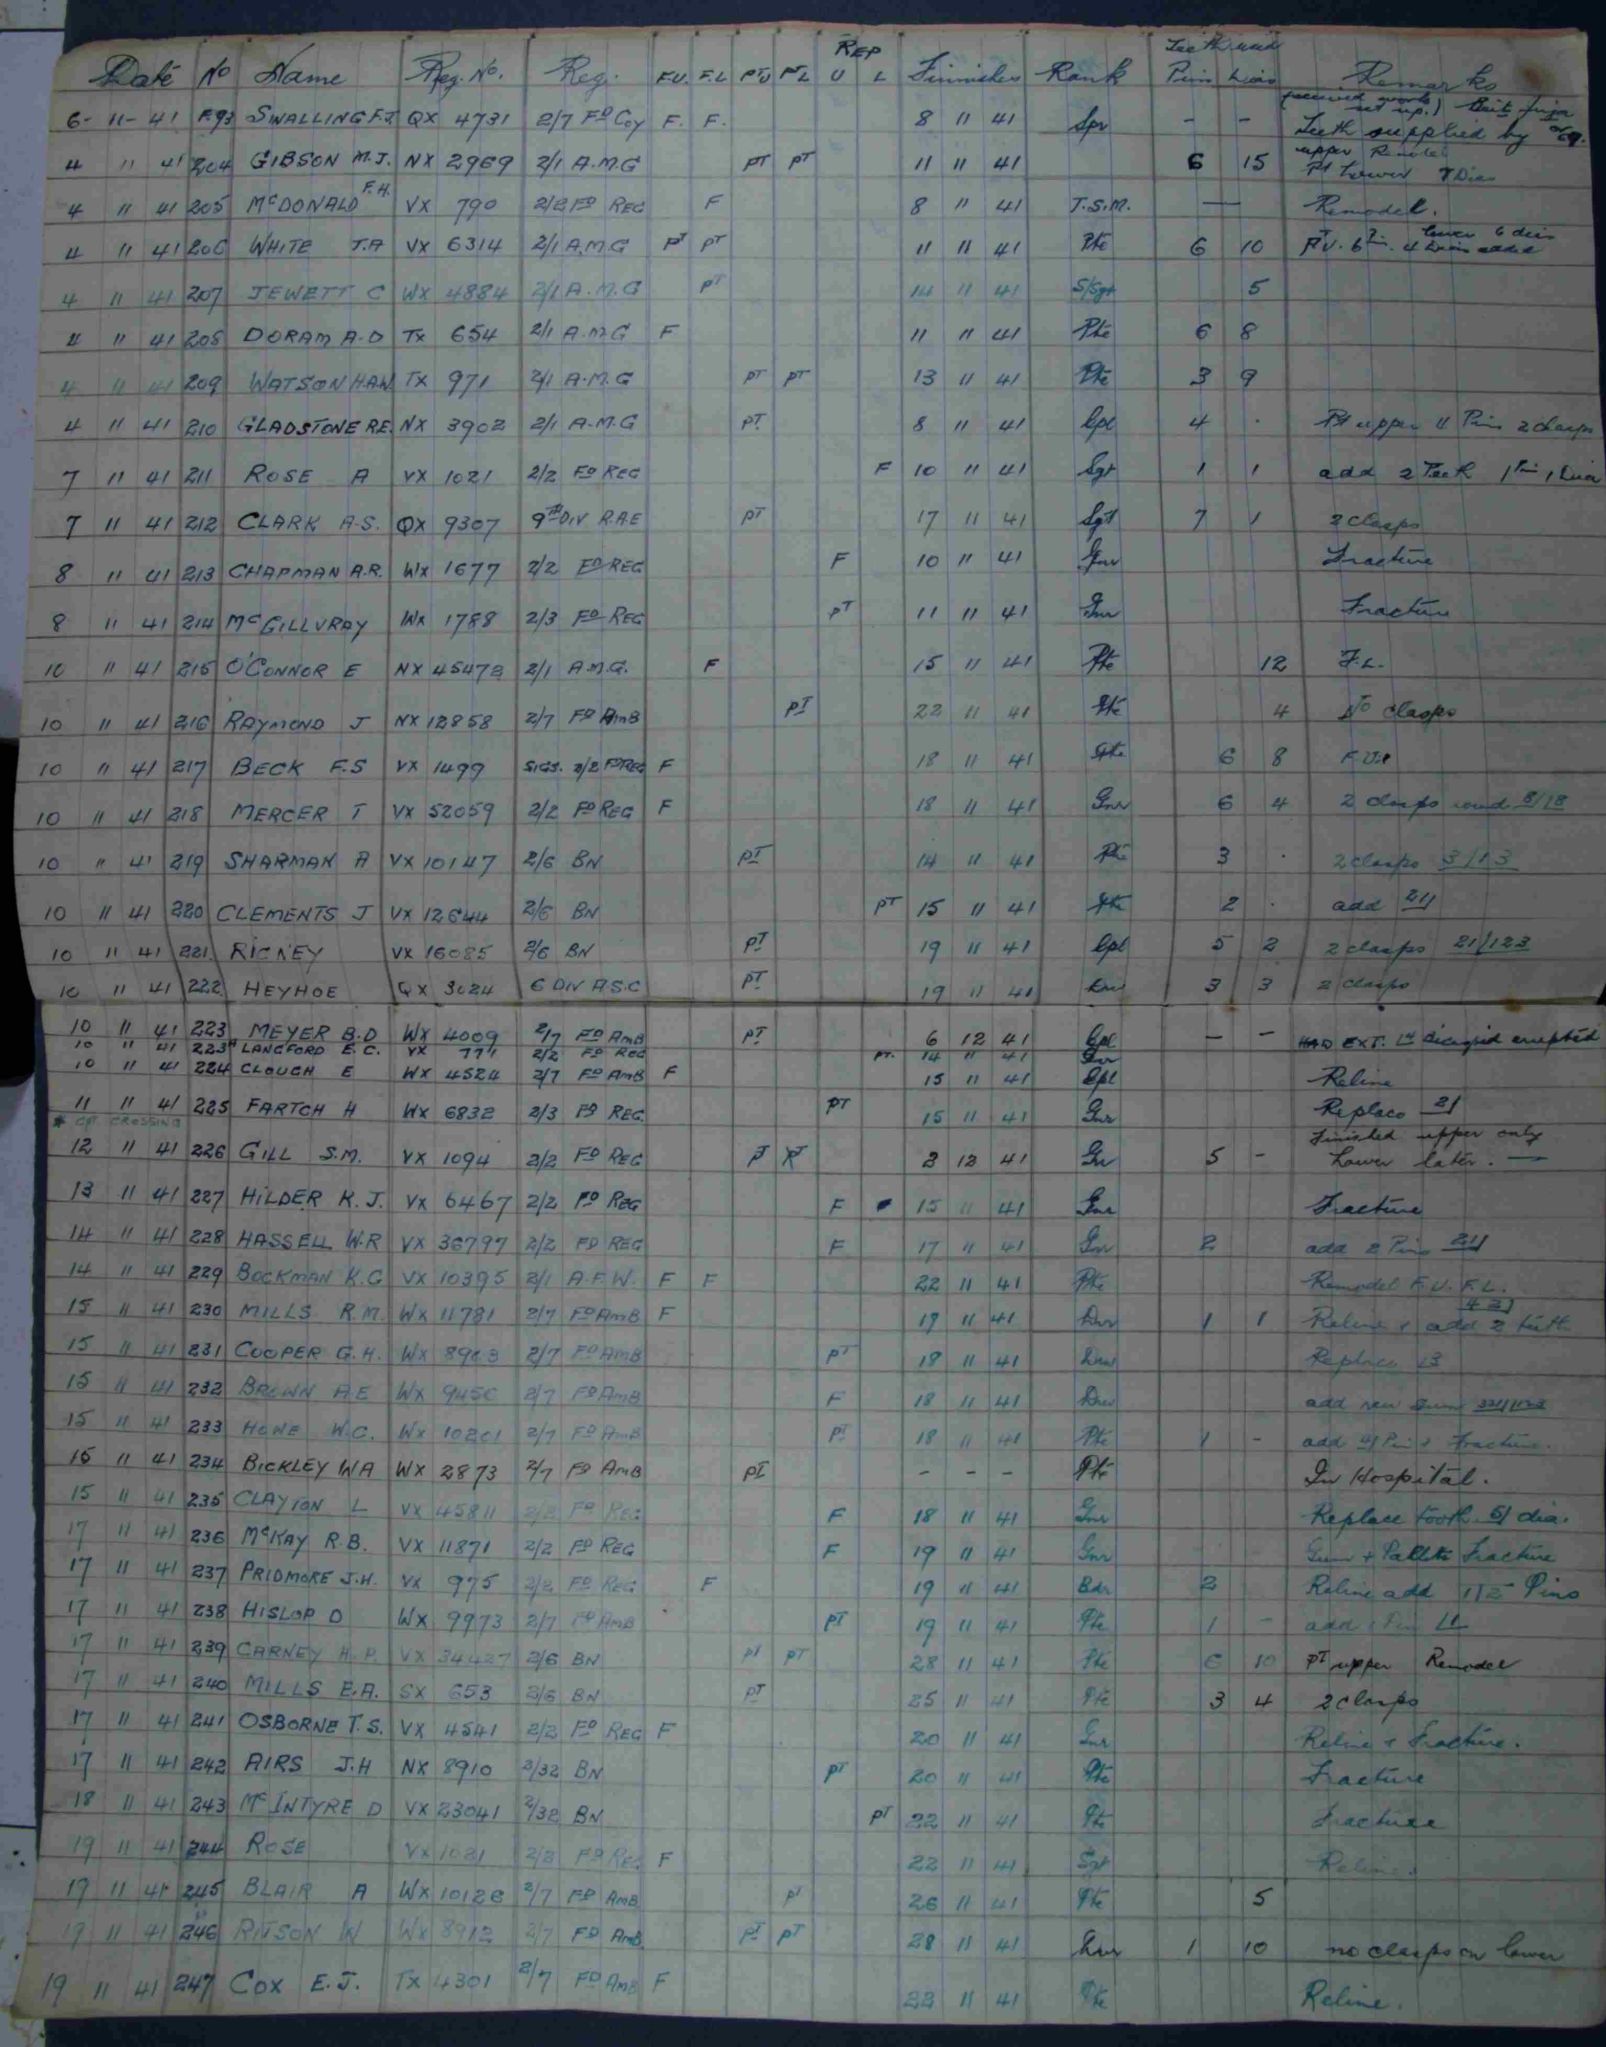 REP Teeth used
Date No Name Reg. No. Reg. F.U. F.L PTU PTL U L Finishes Rank Pins Dias Remarks
6- 11- 41 F.93 SWALLING F.J. QX 4731 2/7 FD Coy F. F. 8 11 41 Spr - - Teeth supplied by
4 11 41 204 GIBSON M.J. NX 2969 2/1 A.M.G PT PT 11 11 41 6 15 upper Remodel PT Lower 7 Dias
4 11 41 205 McDONALD F.H. VX 790 2/2 FD REG F 8 11 41 T.S.M. — Remodel.
4 11 41 206 WHITE T.A VX 6314 2/1 A.M.G PT PT 11 11 41 Pte 6 10 PT U. 6 Pin. 4 Dias added lower 6 dias
4 11 41 207 JEWETT C WX 4884 2/1 A.M.G PT 14 11 41 S/Sgt 5
4 11 41 208 DORAM A.D TX 654 2/1 A.M.G F 11 11 41 Pte 6 8
4 11 41 209 WATSON H.A.W. TX 971 2/1 A.M.G PT PT 13 11 41 Pte 3 9
4 11 41 210 GLADSTONE R.E. NX 3902 2/1 A.M.G PT 8 11 41 Cpl 4 . PT upper 4 Pins 2 clasps
7 11 41 211 ROSE A VX 1021 2/2 FD REG F 10 11 41 Sgt 1 1 add 2 Teeth 1 Pin 1 Dia
7 11 41 212 CLARK A.S. QX 9307 9TH DIV R.A.E PT 17 11 41 Sgt 7 1 2 clasps
8 11 41 213 CHAPMAN A.R. WX 1677 2/2 FD REG F 10 11 41 Gnr Fracture
8 11 41 214 McGILLVRAY WX 1788 2/3 FD REG PT 11 11 41 Gnr Fracture
10 11 41 215 O'CONNOR E NX 45472 2/1 A.M.G. F 15 11 41 Pte 12 F.L.
10 11 41 216 RAYMOND J NX 12858 2/7 FD AmB PT 22 11 41 Pte 4 No clasps
10 11 41 217 BECK F.S VX 1499 SIGS. 2/2 FD REG F 18 11 41 Pte 6 8
10 11 41 218 MERCER T VX 52059 2/2 FD REG F 18 11 41 Gnr 6 4 2 clasps round 8/18
10 11 41 219 SHARMAN A VX 10147 2/6 BN PT 14 11 41 Pte 3 . 2 clasps 3/13
10 11 41 220 CLEMENTS J VX 12644 2/6 BN PT 15 11 41 Pte 2 . add 21/
10 11 41 221. RICKEY VX 16085 2/6 BN PT 19 11 41 Cpl 5 2 2 clasps 21/123
10 11 41 222 HEYHOE QX 3024 6 DIV A.S.C PT 19 11 41 Dvr 3 3 2 clasps
10 11 41 223 MEYER B.D WX 4009 2/7 FD AmB PT 6 12 41 Cpl - - HAD EXT.
10 11 41 223A LANGFORD E.C. VX 771 2/2 FD REG PT. 14 11 41 Gnr
10 11 41 224 CLOUGH E WX 4524 2/7 FD AmB F 15 11 41 Cpl Reline
11 11 41 225 FARTCH H WX 6832 2/3 FD REG. PT 15 11 41 Gnr Replace 2/
* CPT CROSSING
12 11 41 226 GILL S.M. VX 1094 2/2 FD REG PT PT 2 12 41 Gnr 5 - Finished upper only Lower later. —
13 11 41 227 HILDER K.J. VX 6467 2/2 FD REG F 15 11 41 Gnr Fracture
14 11 41 228 HASSELL W.R VX 36797 2/2 FD REG F 17 11 41 Gnr 2 add 2 Pins 21/
14 11 41 229 BOCKMAN K.G VX 10395 2/1 A.F.W. F F 22 11 41 Pte Remodel F.U. F.L.
15 11 41 230 MILLS R.M. WX 11781 2/7 FD AmB F 19 11 41 Dvr 1 1 Reline & add 2 teeth 42/
15 11 41 231 COOPER G.H. WX 8963 2/7 FD AMB PT 18 11 41 Dvr Replace /3
15 11 41 232 BROWN A.E WX 9450 2/7 FD AmB F 18 11 41 Dvr add new Gum 321/123
15 11 41 233 HOWE W.C. WX 10201 2/7 FD AmB PT 18 11 41 Pte 1 - add 4/ Pin & Fracture.
15 11 41 234 BICKLEY W A WX 2873 2/7 FD AmB PT - - - Pte In Hospital.
15 11 41 235 CLAYTON L VX 45811 2/2 FD REG F 18 11 41 Gnr Replace tooth 5/ dia.
17 11 41 236 McKAY R.B. VX 11871 2/2 FD REG F 19 11 41 Gnr Gum + Pallete Fracture
17 11 41 237 PRIDMORE J.H. VX 975 2/2 FD REG F 19 11 41 Bdr 2 Reline add 1/2 Pins
17 11 41 238 HISLOP D WX 9973 2/7 FD AMB PT 19 11 41 Pte 1 - add 1 Pin
17 11 41 239 CARNEY H.P. VX 34427 2/6 BN PT PT 28 11 41 Pte 6 10 PT upper Remodel
17 11 41 240 MILLS E.A. SX 653 2/6 BN PT 25 11 41 Pte 3 4 2 clasps
17 11 41 241 OSBORNE T.S. VX 4541 2/2 FD REG F 20 11 41 Gnr Reline & Fracture.
17 11 41 242 AIRS J.H NX 8910 2/32 BN PT 20 11 41 Pte Fracture
18 11 41 243 McINTYRE D VX 23041 2/32 BN PT 22 11 41 Pte Fracture
19 11 41 244 ROSE VX 1021 2/2 FD REG F 22 11 41 Sgt Reline.
19 11 41 245 BLAIR A WX 10126 2/7 FD AmB PT 26 11 41 Pte 5
19 11 41 246 RITSON W WX 8912 2/7 FD AmB. PT PT 28 11 41 Dvr 1 10 no clasps on lower
19 11 41 247 COX E.J. TX 4301 2/7 FD AmB F 22 11 41 Pte Reline.